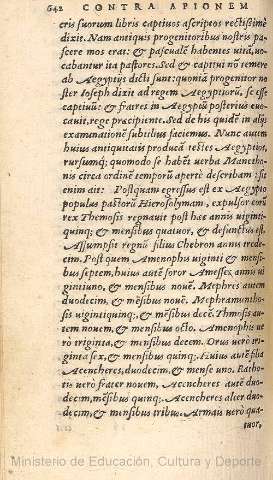 642 CONTRA APIONEM
cris suorum libris captiuos ascriptos rectissimè
dixit. Nam antiquis progenitoribus nostris pa-
scere mos erat: & pascualē habentes uitā, uo-
cabantur ita pastores. Sed & captiui non temerè
ab Aegyptijs dicti sunt: quoniā progenitor no
ster Ioseph dixit ad regem Aegyptiorū, se esse
captiuū: & fratres in Aegyptū posterius euo-
cauit, rege præcipiente. Sed de his quidē in alijs
examinationē subtilius faciemus. Nunc autem
huius antiquitatis producā testes Aegyptios,
rursumq; quomodo se habēt uerba Manetho-
nis circa ordinē temporū aperiè describam: sit
enim ait: Postquam egressus est ex Aegypto
populus pastorū Hierosolymam, expulsor eorū
rex Themosis regnauit post hæc annis uiginti-
quinq; & mensibus quatuor, & defunctus est.
Assumpsit regnū filius Chebron annis trede-
cim. Post quem Amenophis uiginti & mensi-
bus septem, huius autē soror Amesses, annis ui
gintiuno, & mensibus nouē. Mephres autem
duodecim, & mēsibus nouē. Mephramutho-
sis uigintiquinq;, & mensibus decē. Thmosis au-
tem nouem, & mensibus octo. Amenophis ue
rò triginta, & mensibus decem. Orus uerò tri-
ginta sex, & mensibus quinq; Huius autē filia
Acencheres, duodecim, & mense uno. Ratho-
tis uerò frater nouem, Acencheres autē duo-
decim, mēsibus quinq;. Acencheres alter duo-
decim, & mensibus tribus. Armais uerò qua-
tuor,
Ministerio de Educación, Cultura y Deporte